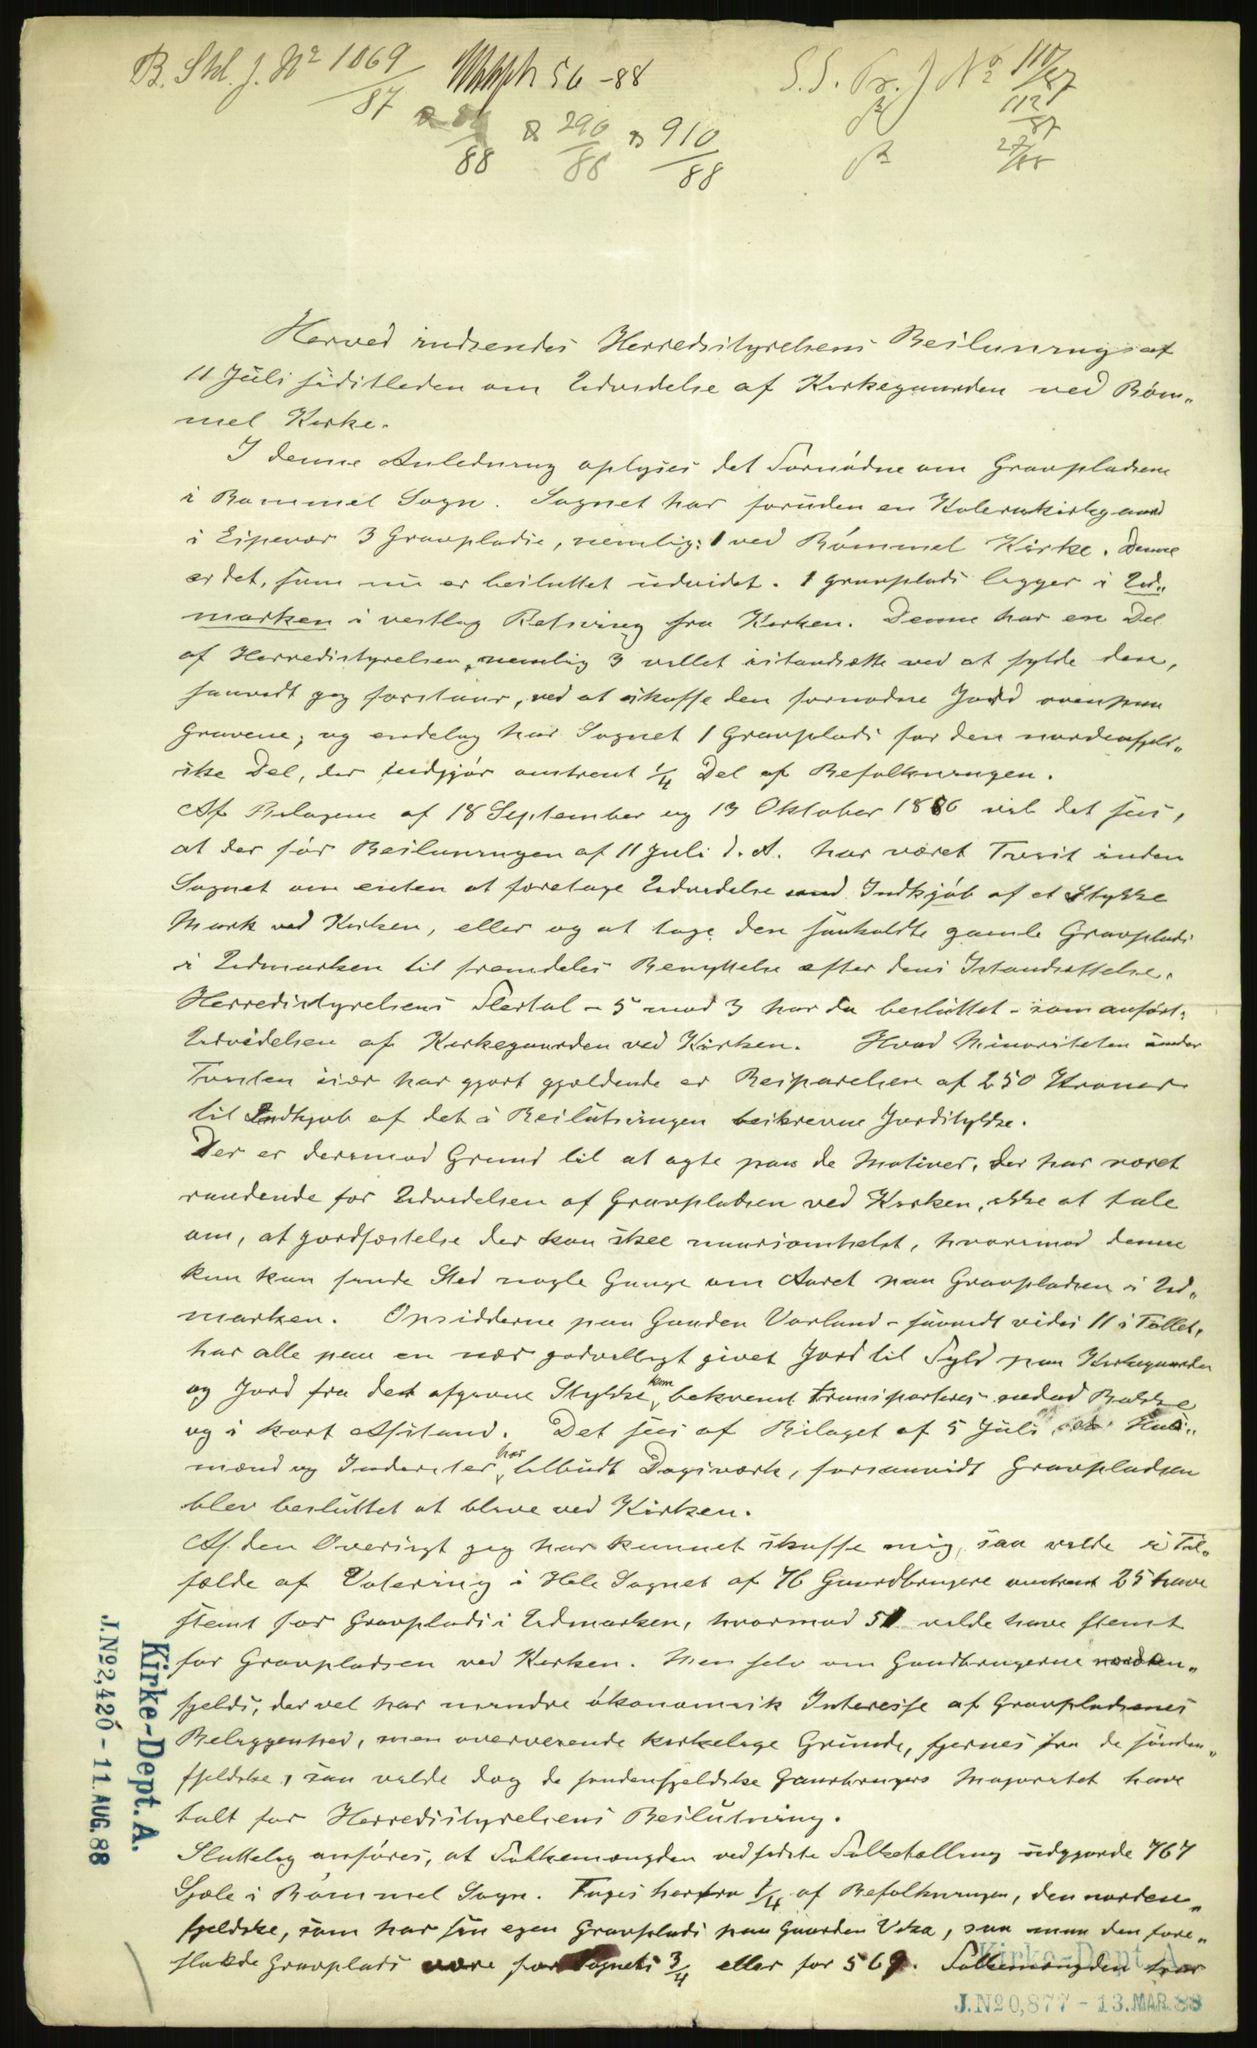 B. Stil. J. Nº 1069/87 56-88 S. S. Pr. J Nº 110/87
88 290/88 910/88 112/87
27/88
Herved indsendes Herredsstyrelsens Beslutning af
11 Juli sidstleden om Udvidelse af Kirkegaarden ved Bøm„
mel Kirke.
I denne Anledning oplyses det Fornødne om Gravpladsene
i Bømmel Sogn. Sognet har foruden en Kolerakirkegaard
i Espevær 3 Gravpladse, nemlig: 1 ved Bømmel Kirke. Denne
er det, som nu er besluttet udvidet. 1 Gravplads ligger i Ud„
marken i vestlig Retning fra Kirken. Denne har en Del
af Herredsstyrelsen, nemlig 3 villet istandsætte ved at fylde den,
saavidt jeg forstaar, ved at skaffe den fornødne Jord ovenpaa
Gravene; og endelig har Sognet 1 Gravplads for den nordenfjeld„
ske Del, der udgjør omtrent 1/4 Del af Befolkningen.
Af Bilagene af 18 September og 13 Oktober 1886 vil det sees,
at der før Beslutningen af 11 Juli d. A. har været Tvist inden
Sognet om enten at foretage Udvidelse med Indkjøb af et Stykke
Mark ved Kirken, eller og at tage den saakaldte gamle Gravplads
i Udmarken til fremdeles Benyttelse efter dens Istandsættelse.
Herredsstyrelsens Flertal - 5 mod 3 har da besluttet - som anført.
Udvidelsen af Kirkegaarden ved Kirken. Hvad Minoriteten under
Tvisten især har gjort gjældende er Besparelsen af 250 Kroner
til Indkjøb af det i Beslutningen beskrevne Jordstykke.
Der er derimod Grund til at agte paa de Motiver, der har været
raadende for Udvidelsen af Gravpladsen ved Kirken, ikke at tale
om, at Jordfæstelse der kan skee naarsomhelst, hvorimod denne
kun kan finde Sted nogle Gange om Aaret paa Gravpladsen i Ud„
marken. Opsidderne paa Gaarden Vorland - saavidt vides 11 i Tallet,
har alle paa en nær godvilligt givet Jord til Fyld paa Kirkegaarden
og Jord fra det afgivne Stykke kan bekvemt transporteres nedad Bakke
og i kort Afstand. Det sees af Bilaget af 5 Juli, at Hus„
mænd og Inderster har tilbudt Dagsværk, forsaavidt Gravpladsen
blev besluttet at blive ved Kirken.
Af den Oversigt jeg har kunnet skaffe mig, saa vilde i Til„
fælde af Votering i Hele Sognet af 76 Gaardbrugere omtrent 25 have
stemt for Gravplads i Udmarken, hvormod 51 vilde have stemt
for Gravpladsen ved Kirken. Men selv om Gaardbrugerne norden„
fjelds, der vel har mindre økonomisk Interesse af Gravpladsenes
Beliggenhed, men overveiende kirkelige Grunde, fjernes fra de sønden„
fjeldske, saa vilde dog de søndenfjeldske Gaardbrugers Majoritet have
talt for Herredsstyrelsens Beslutning.
Sluttelig anføres, at Folkemængden ved sidste Folketælling udgjorde 767
Sjæle i Bømmel Sogn. Tages herfra 1/4 af Befolkningen, den norden„
fjeldske, som har sin egen Gravplads paa Gaarden Vika, saa maa den fore„
slaaede Gravplads være for Sognets 3/4 eller for 569. Folkemængden har
Kirke-Dept. A.
J.Nº 2,420 - 11. AUG. 88
Kirke-Dept A.
J.Nº 0,877 - 13. MAR. 88